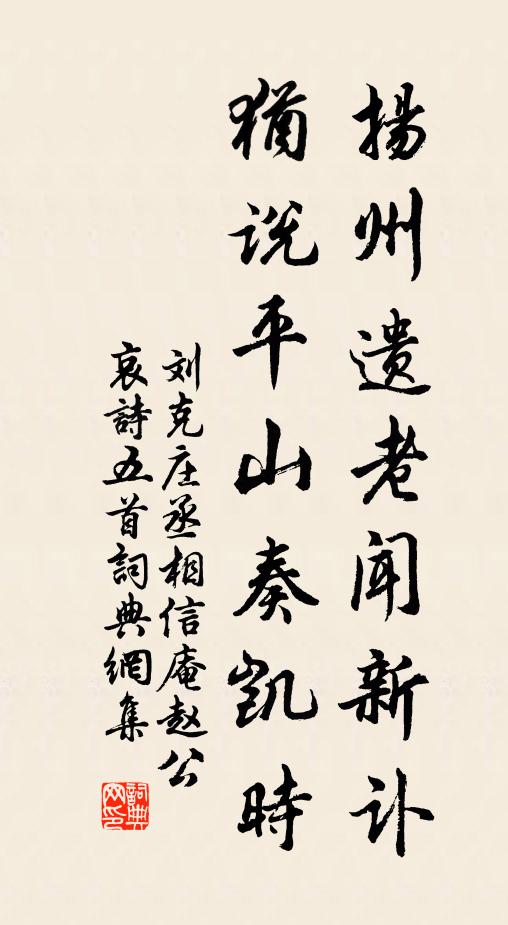 揚州遗老闻新讣
猶说平山奏凯時
刘克庄丞相信庵赵公
哀詩五首詞典網集
詞典网印